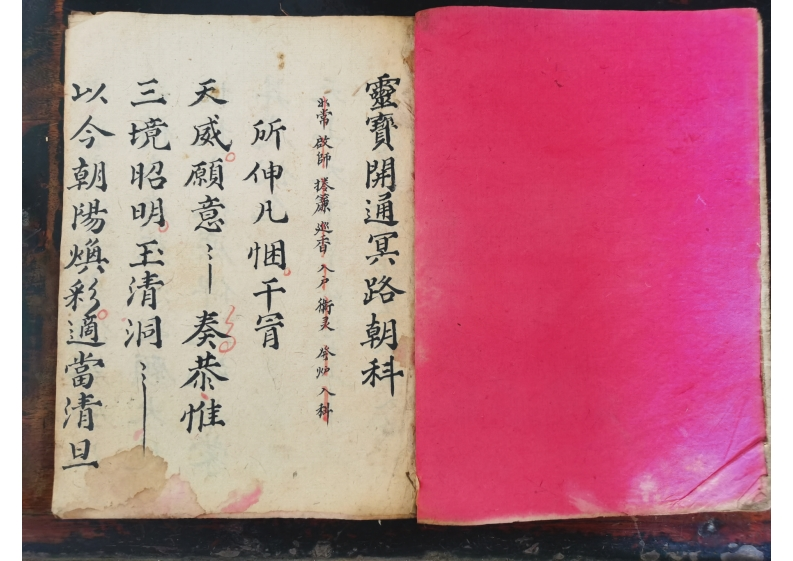 靈寶開通冥路朝科
非常 啟師 捲簾 巡香 入戶 衛灵 發炉 入科
所伸凡悃干冐
天威願意〻 奏恭惟
三境昭明玉清洞〻
以今朝陽煥彩適當清旦